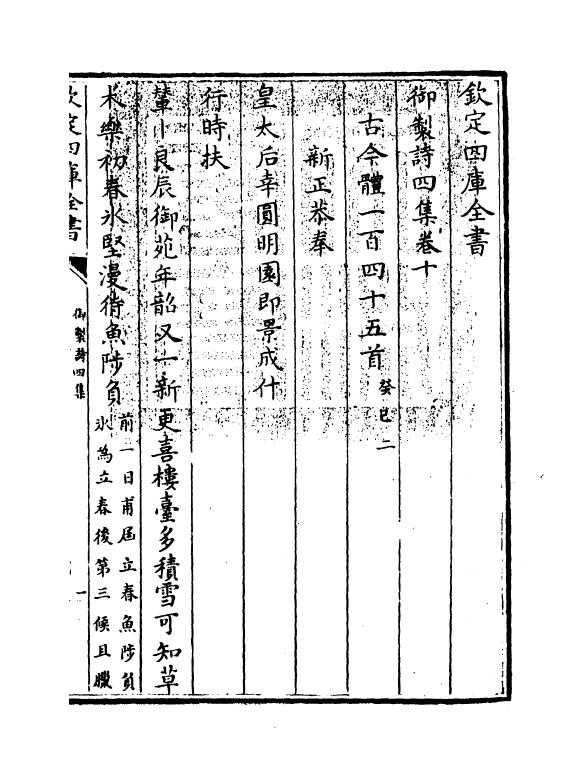 欽定四庫全書
御製詩四集卷十
古今體一百四十五首癸巳二
新正恭奉
皇太后幸圓明園即景成什
行時扶
輦卜良辰御苑年韶又一新更喜樓臺多積雪可知草
木樂初春氷堅漫待魚陟負前一日甫屆立春魚陟負
氷為立春後第三候且臘
欽定四庫全書
御製詩四集
一